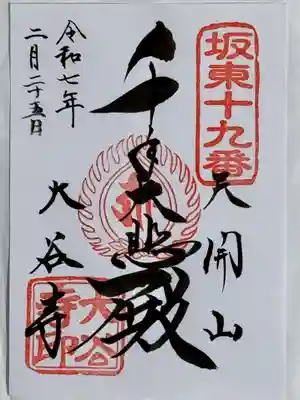 坂東十九番
天開山
千手大悲殿
大谷寺
大谷寺印
令和七年
二月二十五日